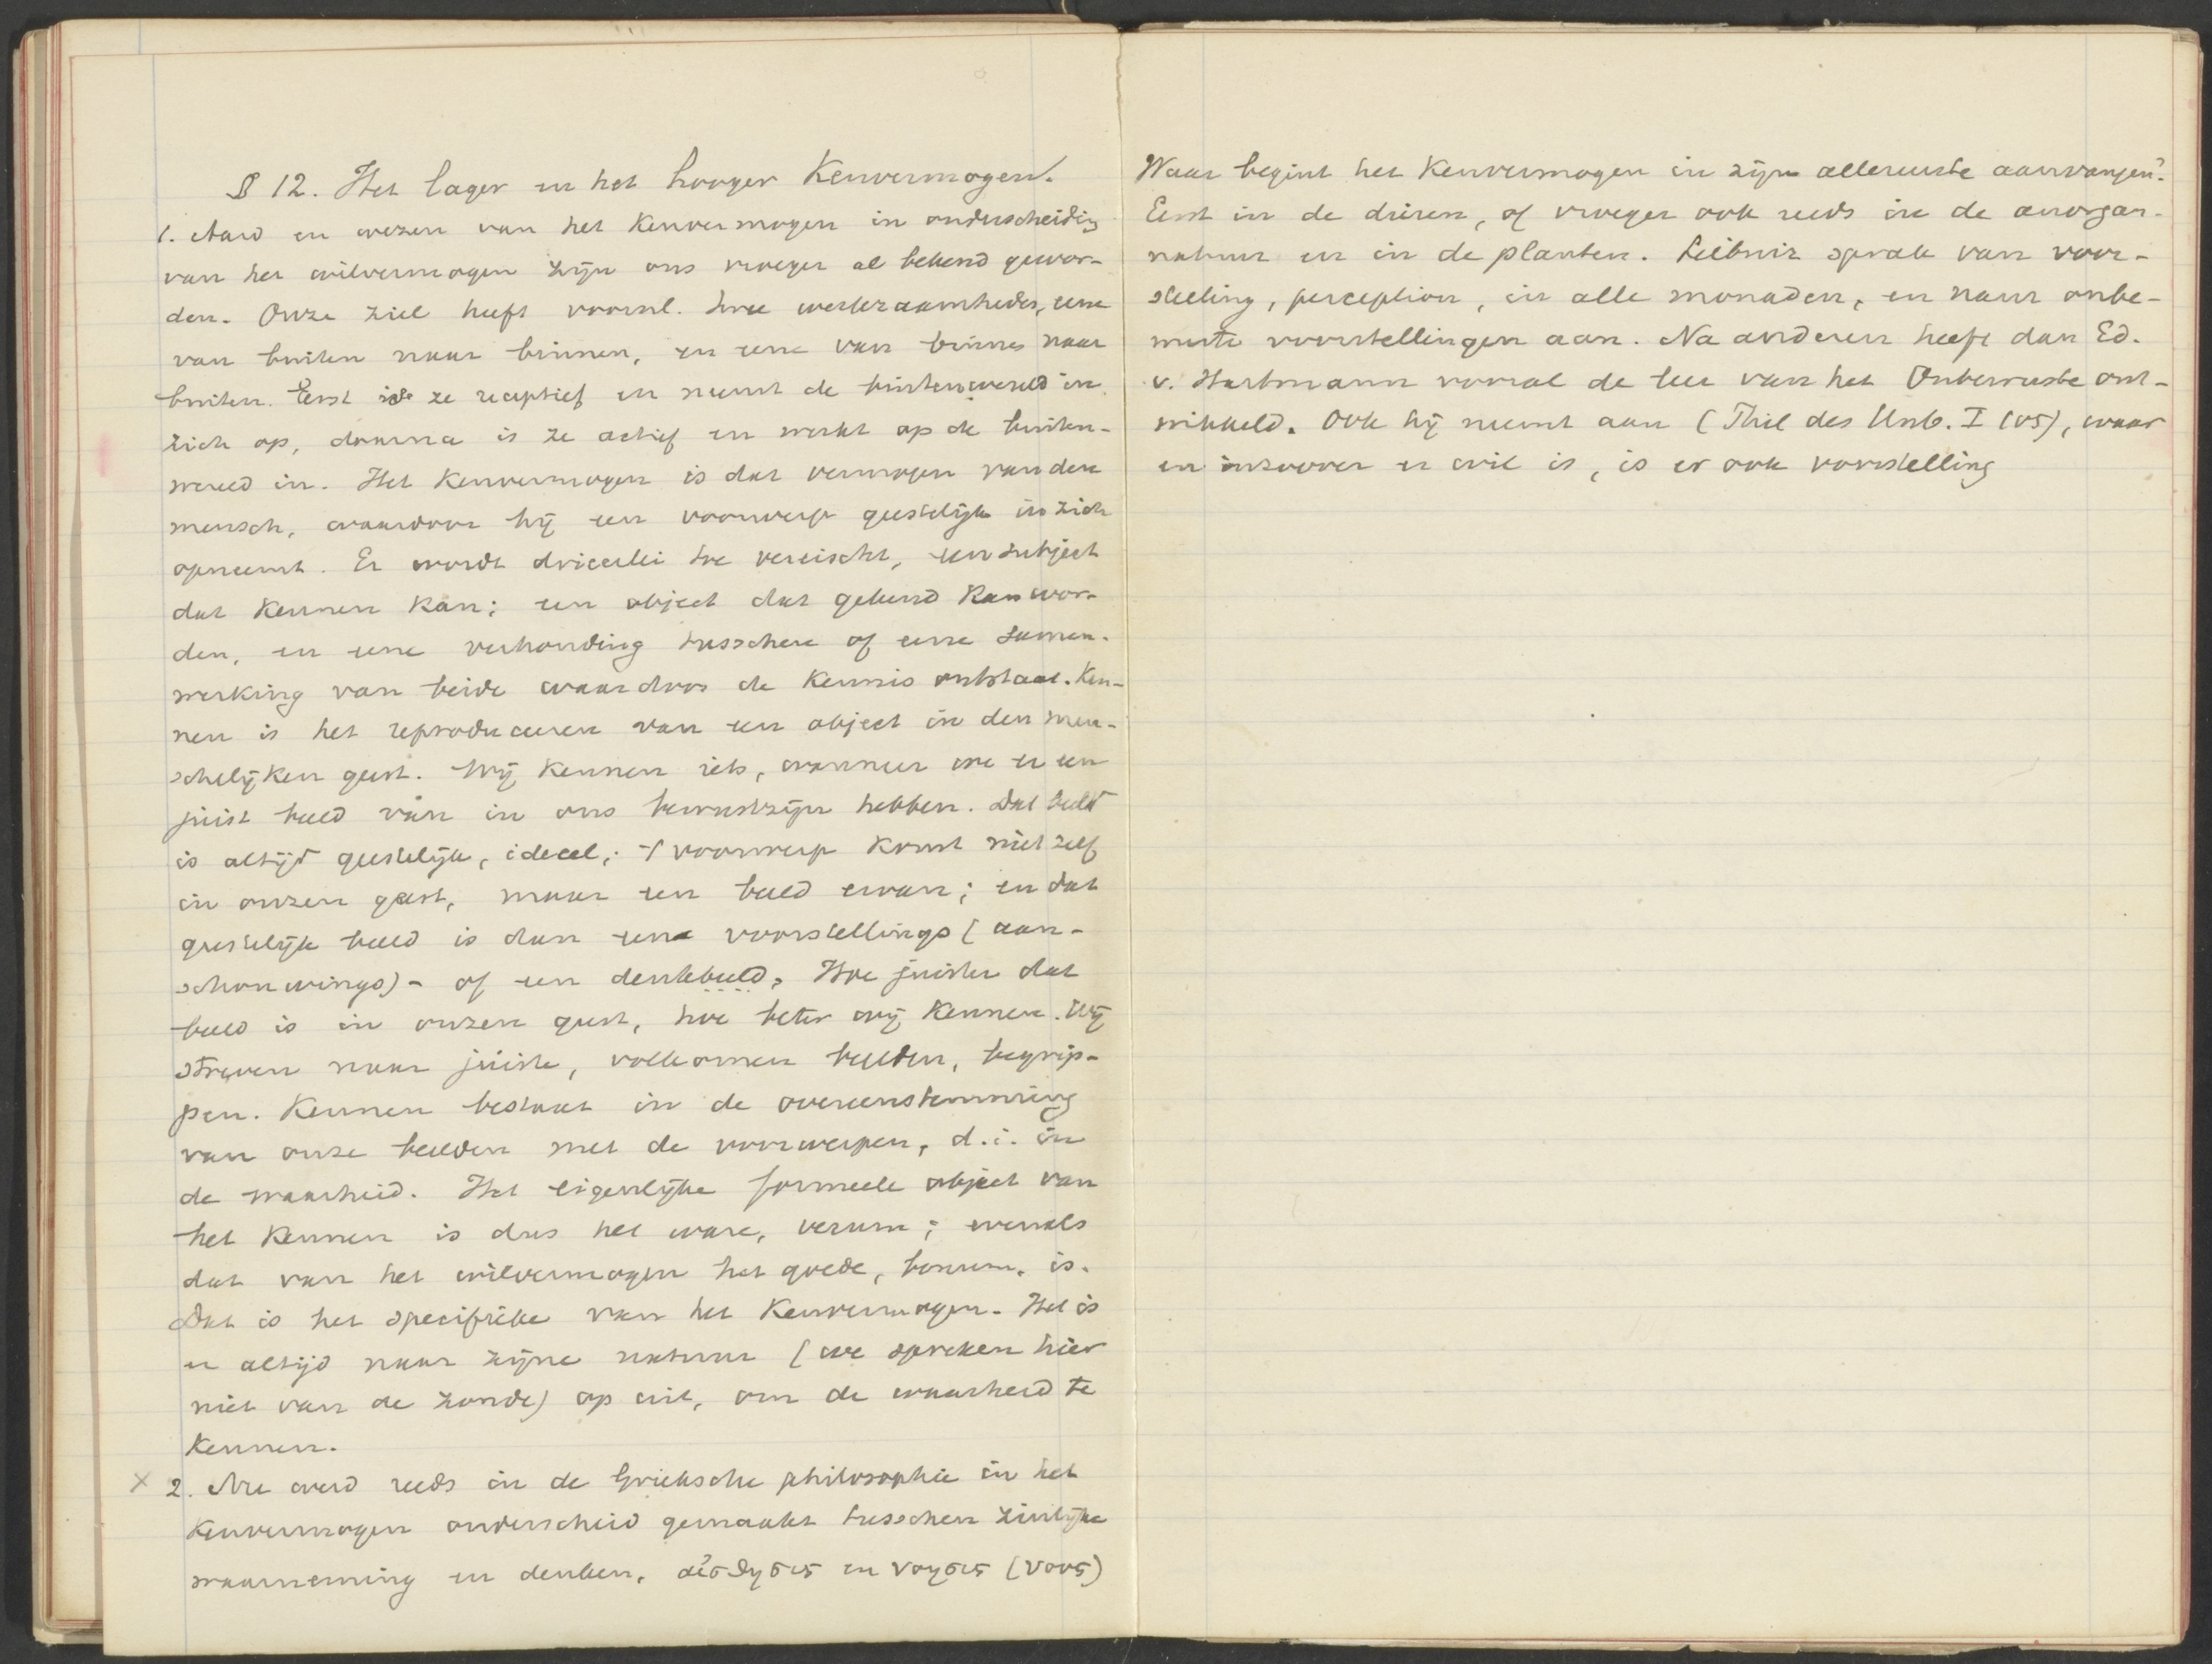 § 12. Het lager en het hooger Kenvermogen.
1. Aard en wezen van het Kenvermogen in onderscheiding
van het wilvermogen zijn ons vroeger al bekend gewor-
den. Onze ziel heeft voornl. twee werkzaamheden, eene
van buiten naar binnen, en eene van binnen naar
buiten. Eerst is ze receptief en neemt de buitenwereld in
zich op, daarna is ze actief en werkt op de buiten-
wereld in. Het Kenvermogen is dat vermogen van den
mensch, waardoor hij een voorwerp geestelijk in zich
opneemt. Er wordt drieerlei toe vereischt, een subject
dat Kennen Kan; een object dat gekend Kan wor-
den, en eene verhouding tusschen of eene samen-
werking van beide waardoor de Kennis ontstaat. Ken-
nen is het reproduceeren van een object in den men-
schelijken geest. Wij Kennen iets, wanneer we er een
juist beeld van in ons bewustzijn hebben. Dat beeld
is altijd geestelijk, ideeel; 't voorwerp Komt niet zelf
in onzen geest, maar een beeld ervan; en dat
geestelijk beeld is dan eene voorstellings (aan-
schouwings)- of een denkbeeld. Hoe juister dat
beeld is in onzen geest, hoe beter wij Kennen. Wij
streven naar juiste, volkomen beelden, begrip-
pen. Kennen bestaat in de overeenstemming
van onze beelden met de voorwerpen, d.i. in
de waarheid. Het eigenlijke formeele object van
het Kennen is dus het ware, verum; evenals
dat van het wilvermogen het goede, bonum, is.
Dat is het specifieke van het Kenvermogen. Het is
er altijd naar zijne natuur (we spreken hier
niet van de zonde) op uit, om de waarheid te
Kennen.
x 2. Nu werd reeds in de Grieksche philosophie in het
Kenvermogen onderscheid gemaakt tusschen zinlijke
waarneming en denken, αἰσθησις en νοησις (νους)
Waar begint het Kenvermogen in zijn allereerste aanvangen?
Eerst in de dieren, of vroeger ook reeds in de anorgan.
natuur en in de planten. Leibniz sprak van voor-
stelling, perception, in alle monaden, en nam onbe-
wuste voorstellingen aan. Na anderen heeft dan Ed.
v. Hartmann vooral de leer van het Onbewuste ont-
wikkeld. Ook hij neemt aan (Phil des Unb. I 105), waar
en inzoover er wil is, is er ook voorstelling